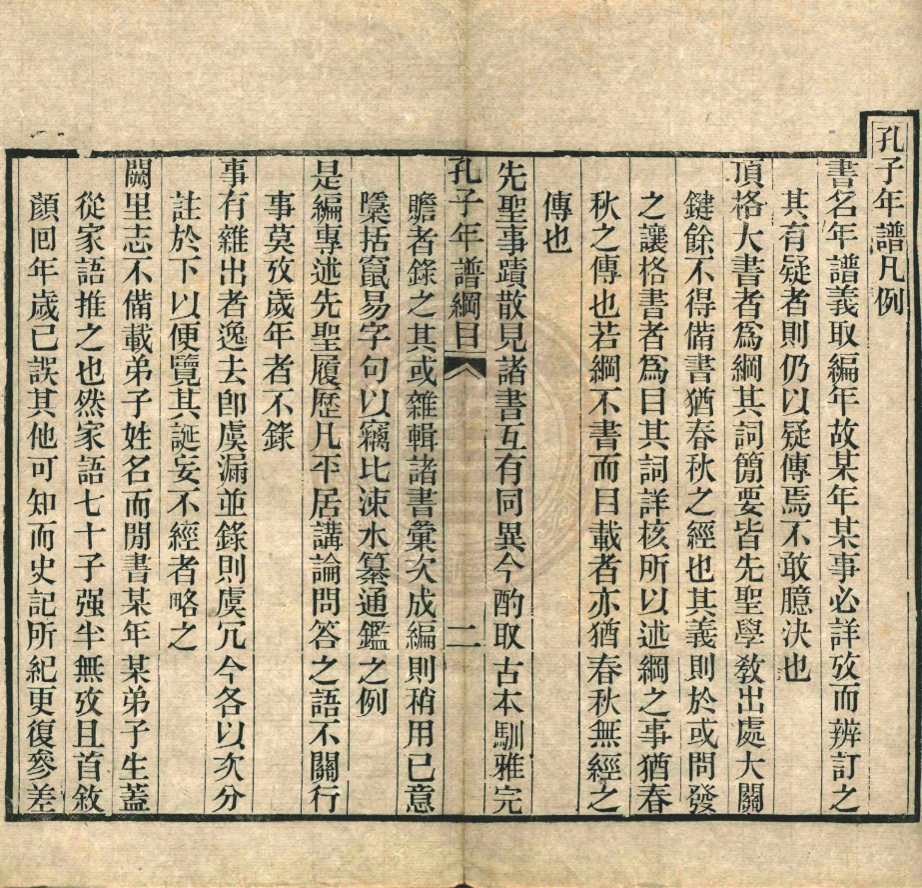 孔子年譜凡例
書名年譜義取編年故某年某事必詳攷而辨訂之
其有疑者則仍以疑傳焉不敢臆決也
頂格大書者爲綱其詞簡要皆先聖學敎出處大關
鍵餘不得備書猶春秋之經也其義則於或問發
之讓格書者爲目其詞詳核所以述綱之事猶春
秋之傳也若綱不書而目載者亦猶春秋無經之
傳也
先聖事蹟散見諸書互有同異今酌取古本馴雅完
孔子年譜綱目 二
贍者錄之其或雜輯諸書彙次成編則稍用已意
檃括竄易字句以竊比涑水纂通鑑之例
是編專述先聖履歷凡平居講論問答之語不關行
事莫攷歲年者不錄
事有雜出者逸去卽虞漏並錄則虞冗今各以次分
註於下以便覽其誕妄不經者略之
闕里志不備載弟子姓名而閒書某年某弟子生蓋
從家語推之也然家語七十子强半無攷且首敘
顏囘年歲已誤其他可知而史記所紀更復參差